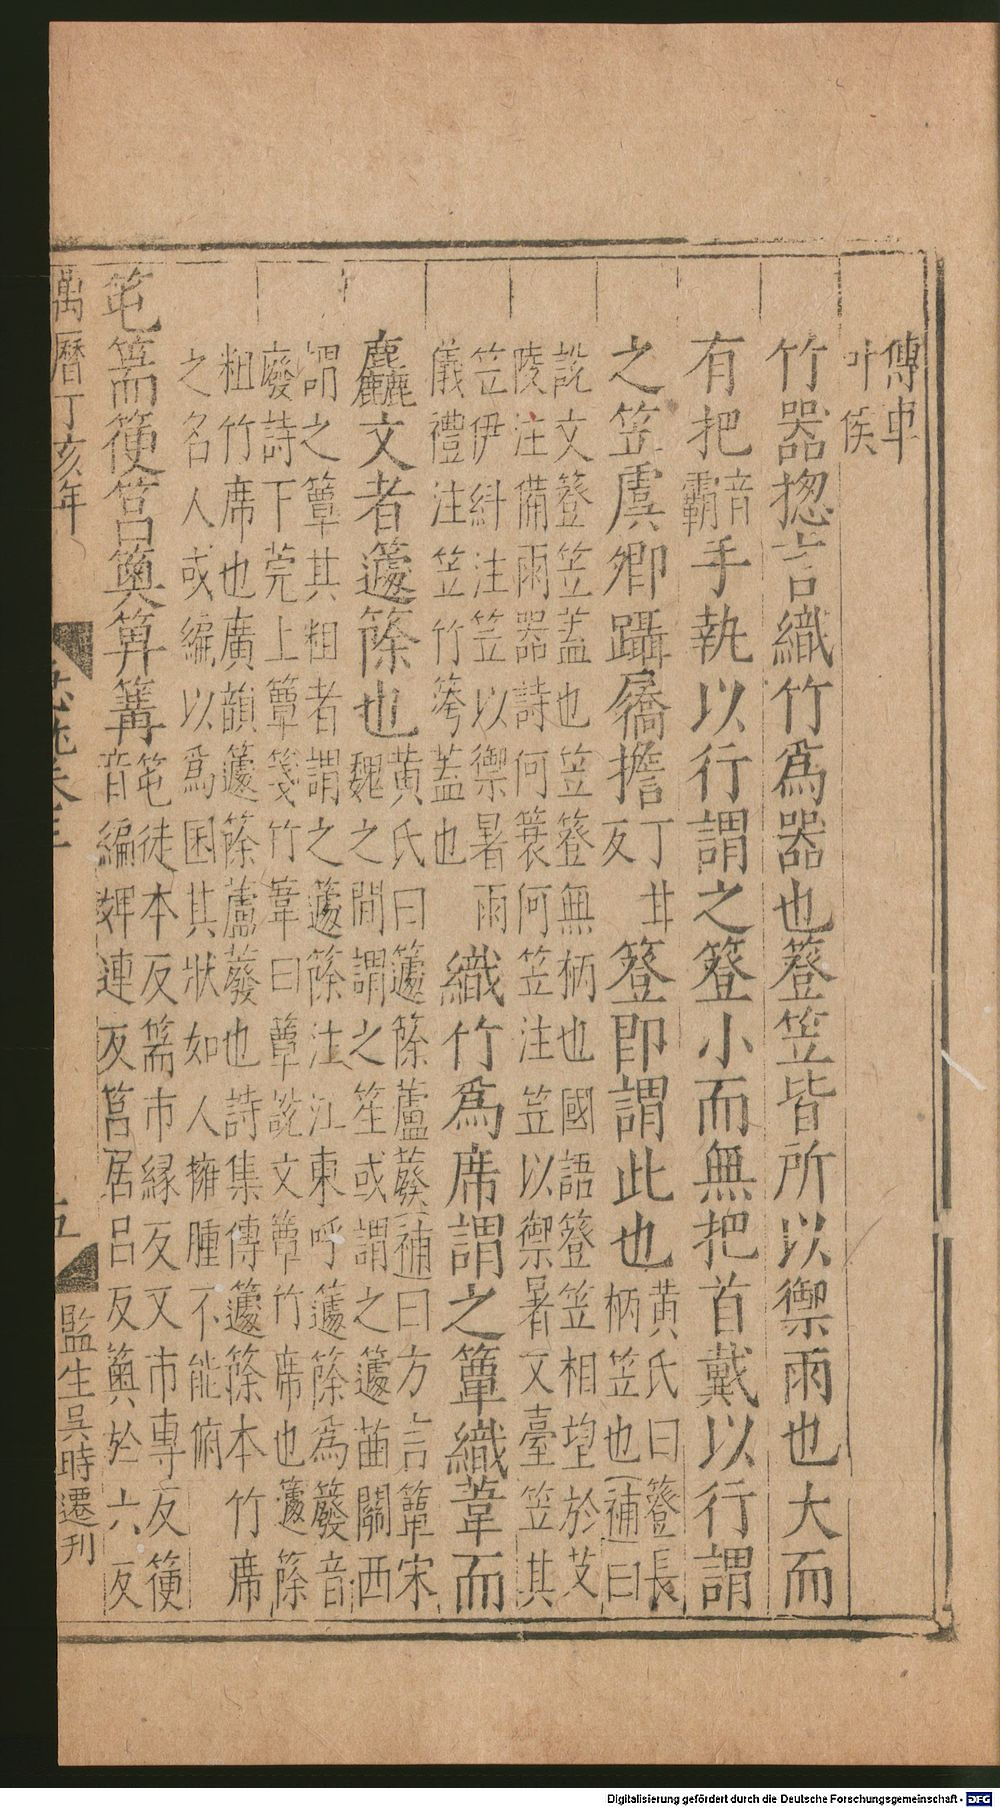 傅車
叶侯
竹器揔言織竹爲器也簦笠皆所以禦雨也大而
有把音霸手執以行謂之簦小而無把首戴以行謂
之笠虞卿躡屩擔丁甘反簦即謂此也黄氏曰簦長柄笠也補曰
說文簦笠蓋也笠簦無柄也國語簦笠相望於艾
陵注備雨器詩何蓑何笠注笠以禦暑又臺笠其
笠伊糾注笠以禦暑雨
儀禮注笠竹䈑蓋也
織竹爲席謂之簟織葦而
麤文者籧篨也黄氏曰籧篨蘆蕟補曰方言簟宋魏之間謂之笙或謂之籧苗關西
謂之簟其粗者謂之籧篨注江東呼籧篨爲䉬音
廢詩下莞上簟箋竹葦曰簟說文簟竹席也籧篨
粗竹席也廣韻籧篨蘆蕟也詩集傳籧篨本竹席
之名人或編以爲囷其狀如人擁腫不能俯
笔篅㯼筥䉛箅篝笔徒本反篅市縁反又市專反㯼音編婢連反筥居呂反䉛於六反
萬曆丁亥年
五
監生吳時遷刊
Digitalisierung gefördert durch die Deutsche Forschungsgemeinschaft - DFG